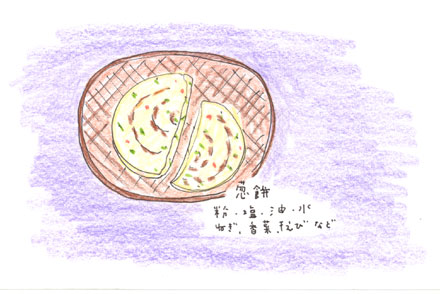 葱餅
粉・塩・油・水
ねぎ、香菜、干えび など